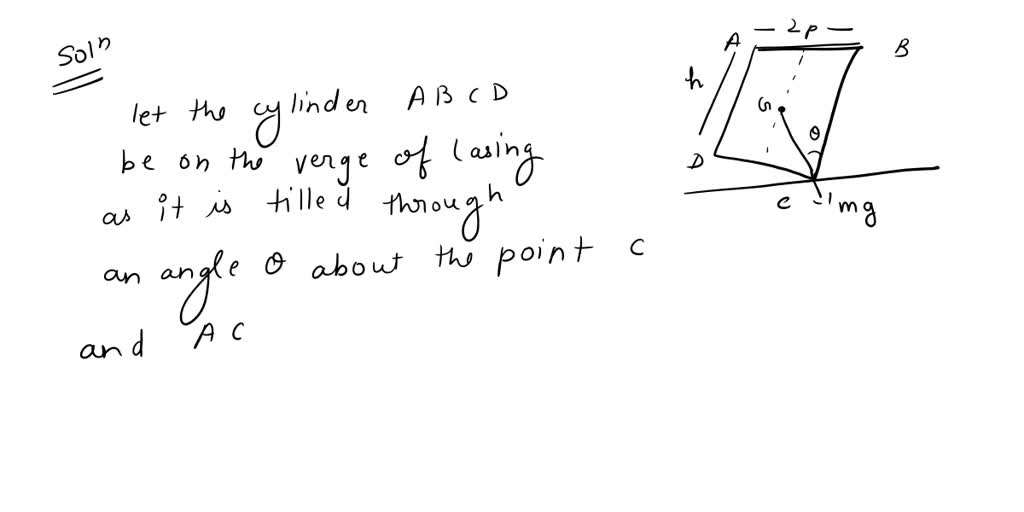 Solⁿ
let the cylinder A B C D
be on the verge of lasing
as it is tilled through
an angle θ about the point C
and A C
A — 2p — B
h
G
θ
D
C mg